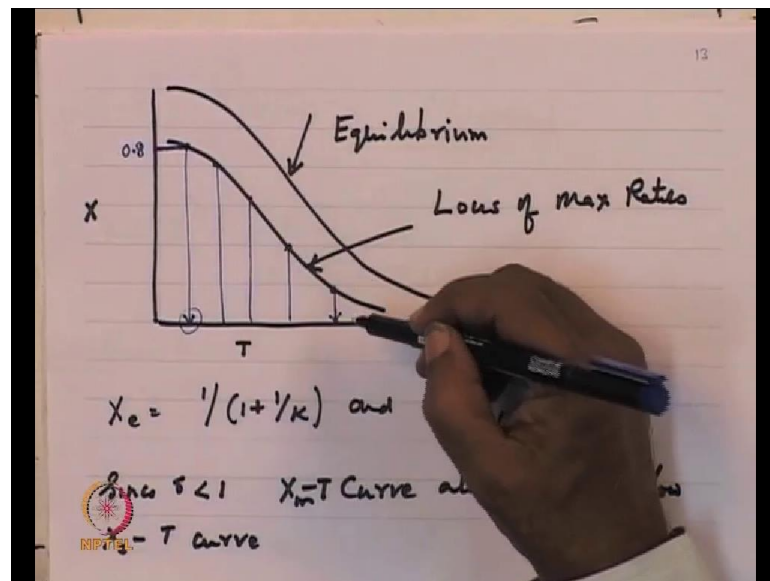 13
Equilibrium
0.8
Locus of Max Rates
X
T
Xe = 1/(1+1/K) and
Since δ < 1 Xm-T Curve
- T curve
NPTEL